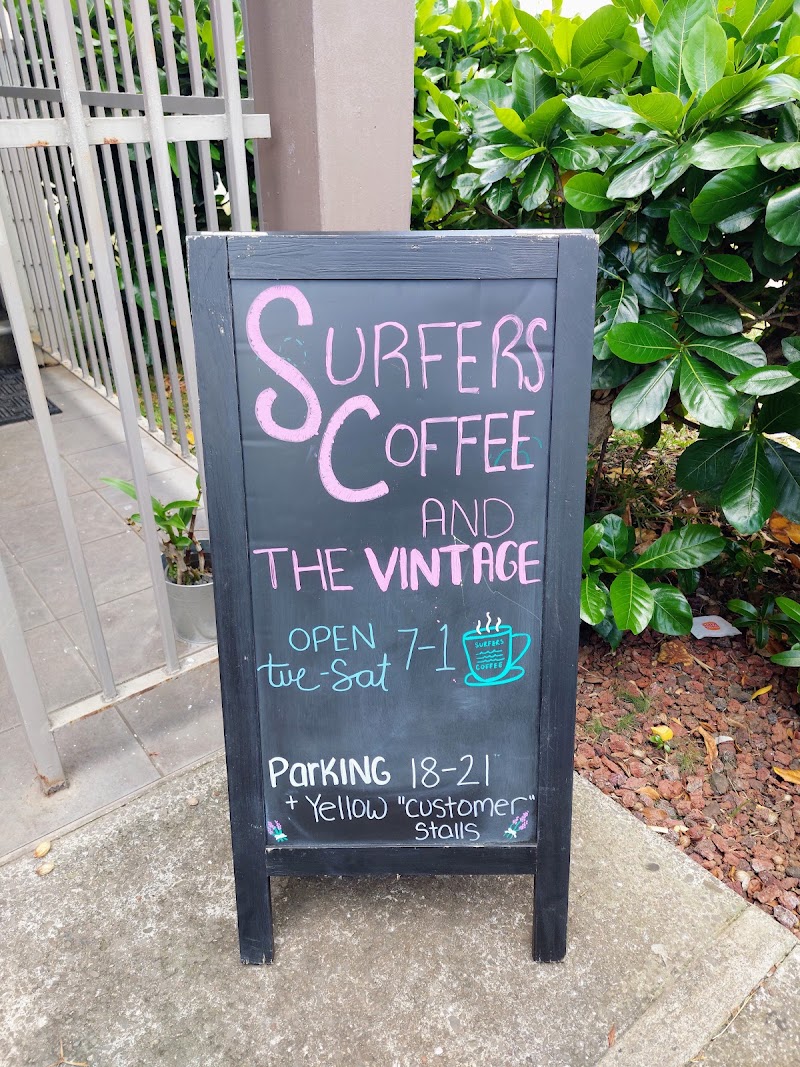 SURFERS
COFFEE
AND
THE VINTAGE
OPEN
tue-Sat 7-1
SURFERS
COFFEE
ParKING 18-21
+ Yellow "customer"
stalls